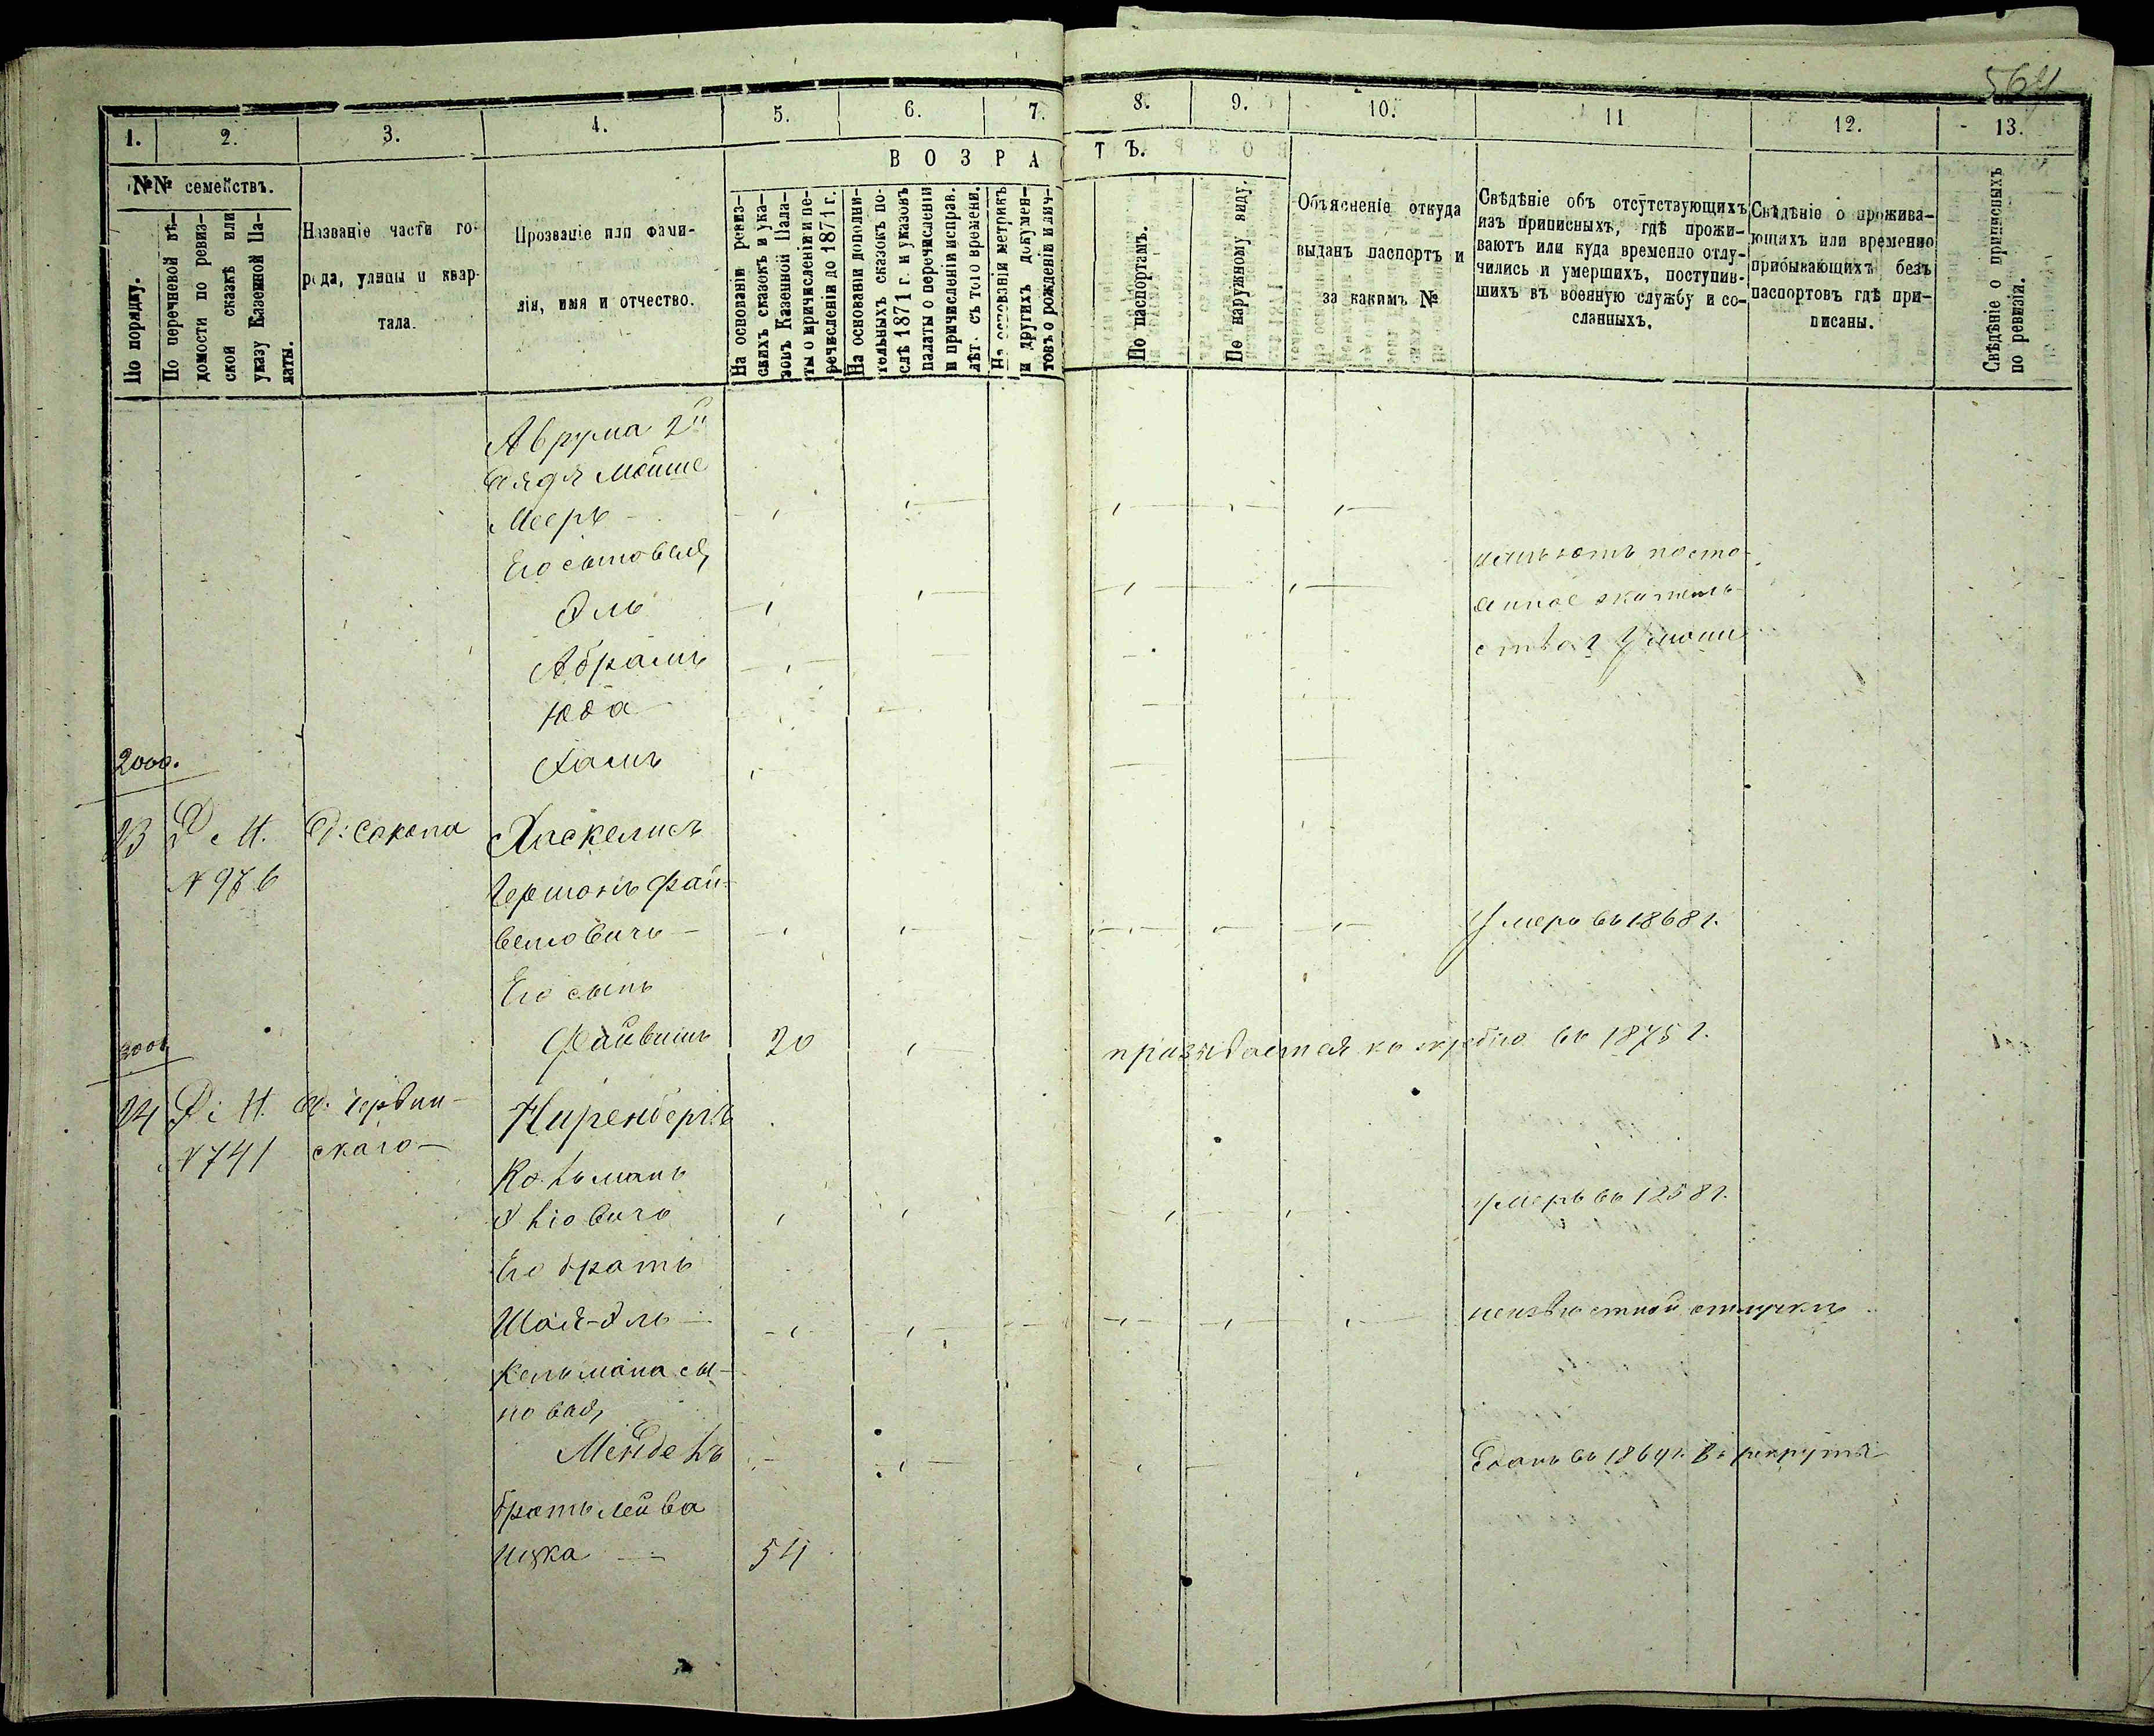 564
1. 2. 3. 4. 5. 6. 7. 8. 9. 10. 11 12. 13.
ВОЗРАСТЪ.
№№ семействъ.
По порядку.
По перечневой вѣ-
домости по ревиз-
ской сказкѣ или
указу Казенной Па-
латы.
Названіе части го-
рода, улицы и квар-
тала.
Прозваніе или фами-
лія, имя и отчество.
На основаніи ревиз-
скихъ сказокъ и ука-
зовъ Казенной Пала-
ты о причисленіи и пе-
речисленіи до 1871 г.
На основаніи дополни-
тельныхъ сказокъ по-
слѣ 1871 г. и указовъ
палаты о перечисленіи
и причисленіи исправ.
лѣт. съ того времени.
На основаніи метрикъ
и другихъ докумен-
товъ о рожденіи и лич-
По паспортамъ.
По наружному виду.
Объясненіе откуда
выданъ паспортъ и
за какимъ №
Свѣдѣніе объ отсутствующихъ
изъ приписныхъ, гдѣ прожи-
ваютъ или куда временно отлу-
чились и умершихъ, поступив-
шихъ въ военную службу и со-
сланныхъ.
Свѣдѣніе о прожива-
ющихъ или временно
прибывающихъ безъ
паспортовъ гдѣ при-
писаны.
Свѣдѣніе о приписныхъ
по ревизіи.
Аврума 2й
дядя Мойше
Мееръ
Его сыновья
имѣютъ посто-
Эль
янное житель-
Абрамъ
ство г
Юда
2000.
Хаимъ
23 Р. М. Сокола Хаскелисъ
№ 976
Гершонъ Фай-
вешовичъ
Умеръ въ 1868 г.
Его сынъ
Файвишъ 20 призывается къ жребію въ 1875 г.
24 Р. М.
№ 741 скаго
Ниренбергъ
Кельманъ
Эліовичъ
умеръ въ 1858 г.
Его братъ
Шая-Эль
неизвѣстной отлучкѣ
Кельмана сы-
новья
Мендель
Сданъ въ 1864 г. въ рекруты
братъ Лейба
Ицка 54